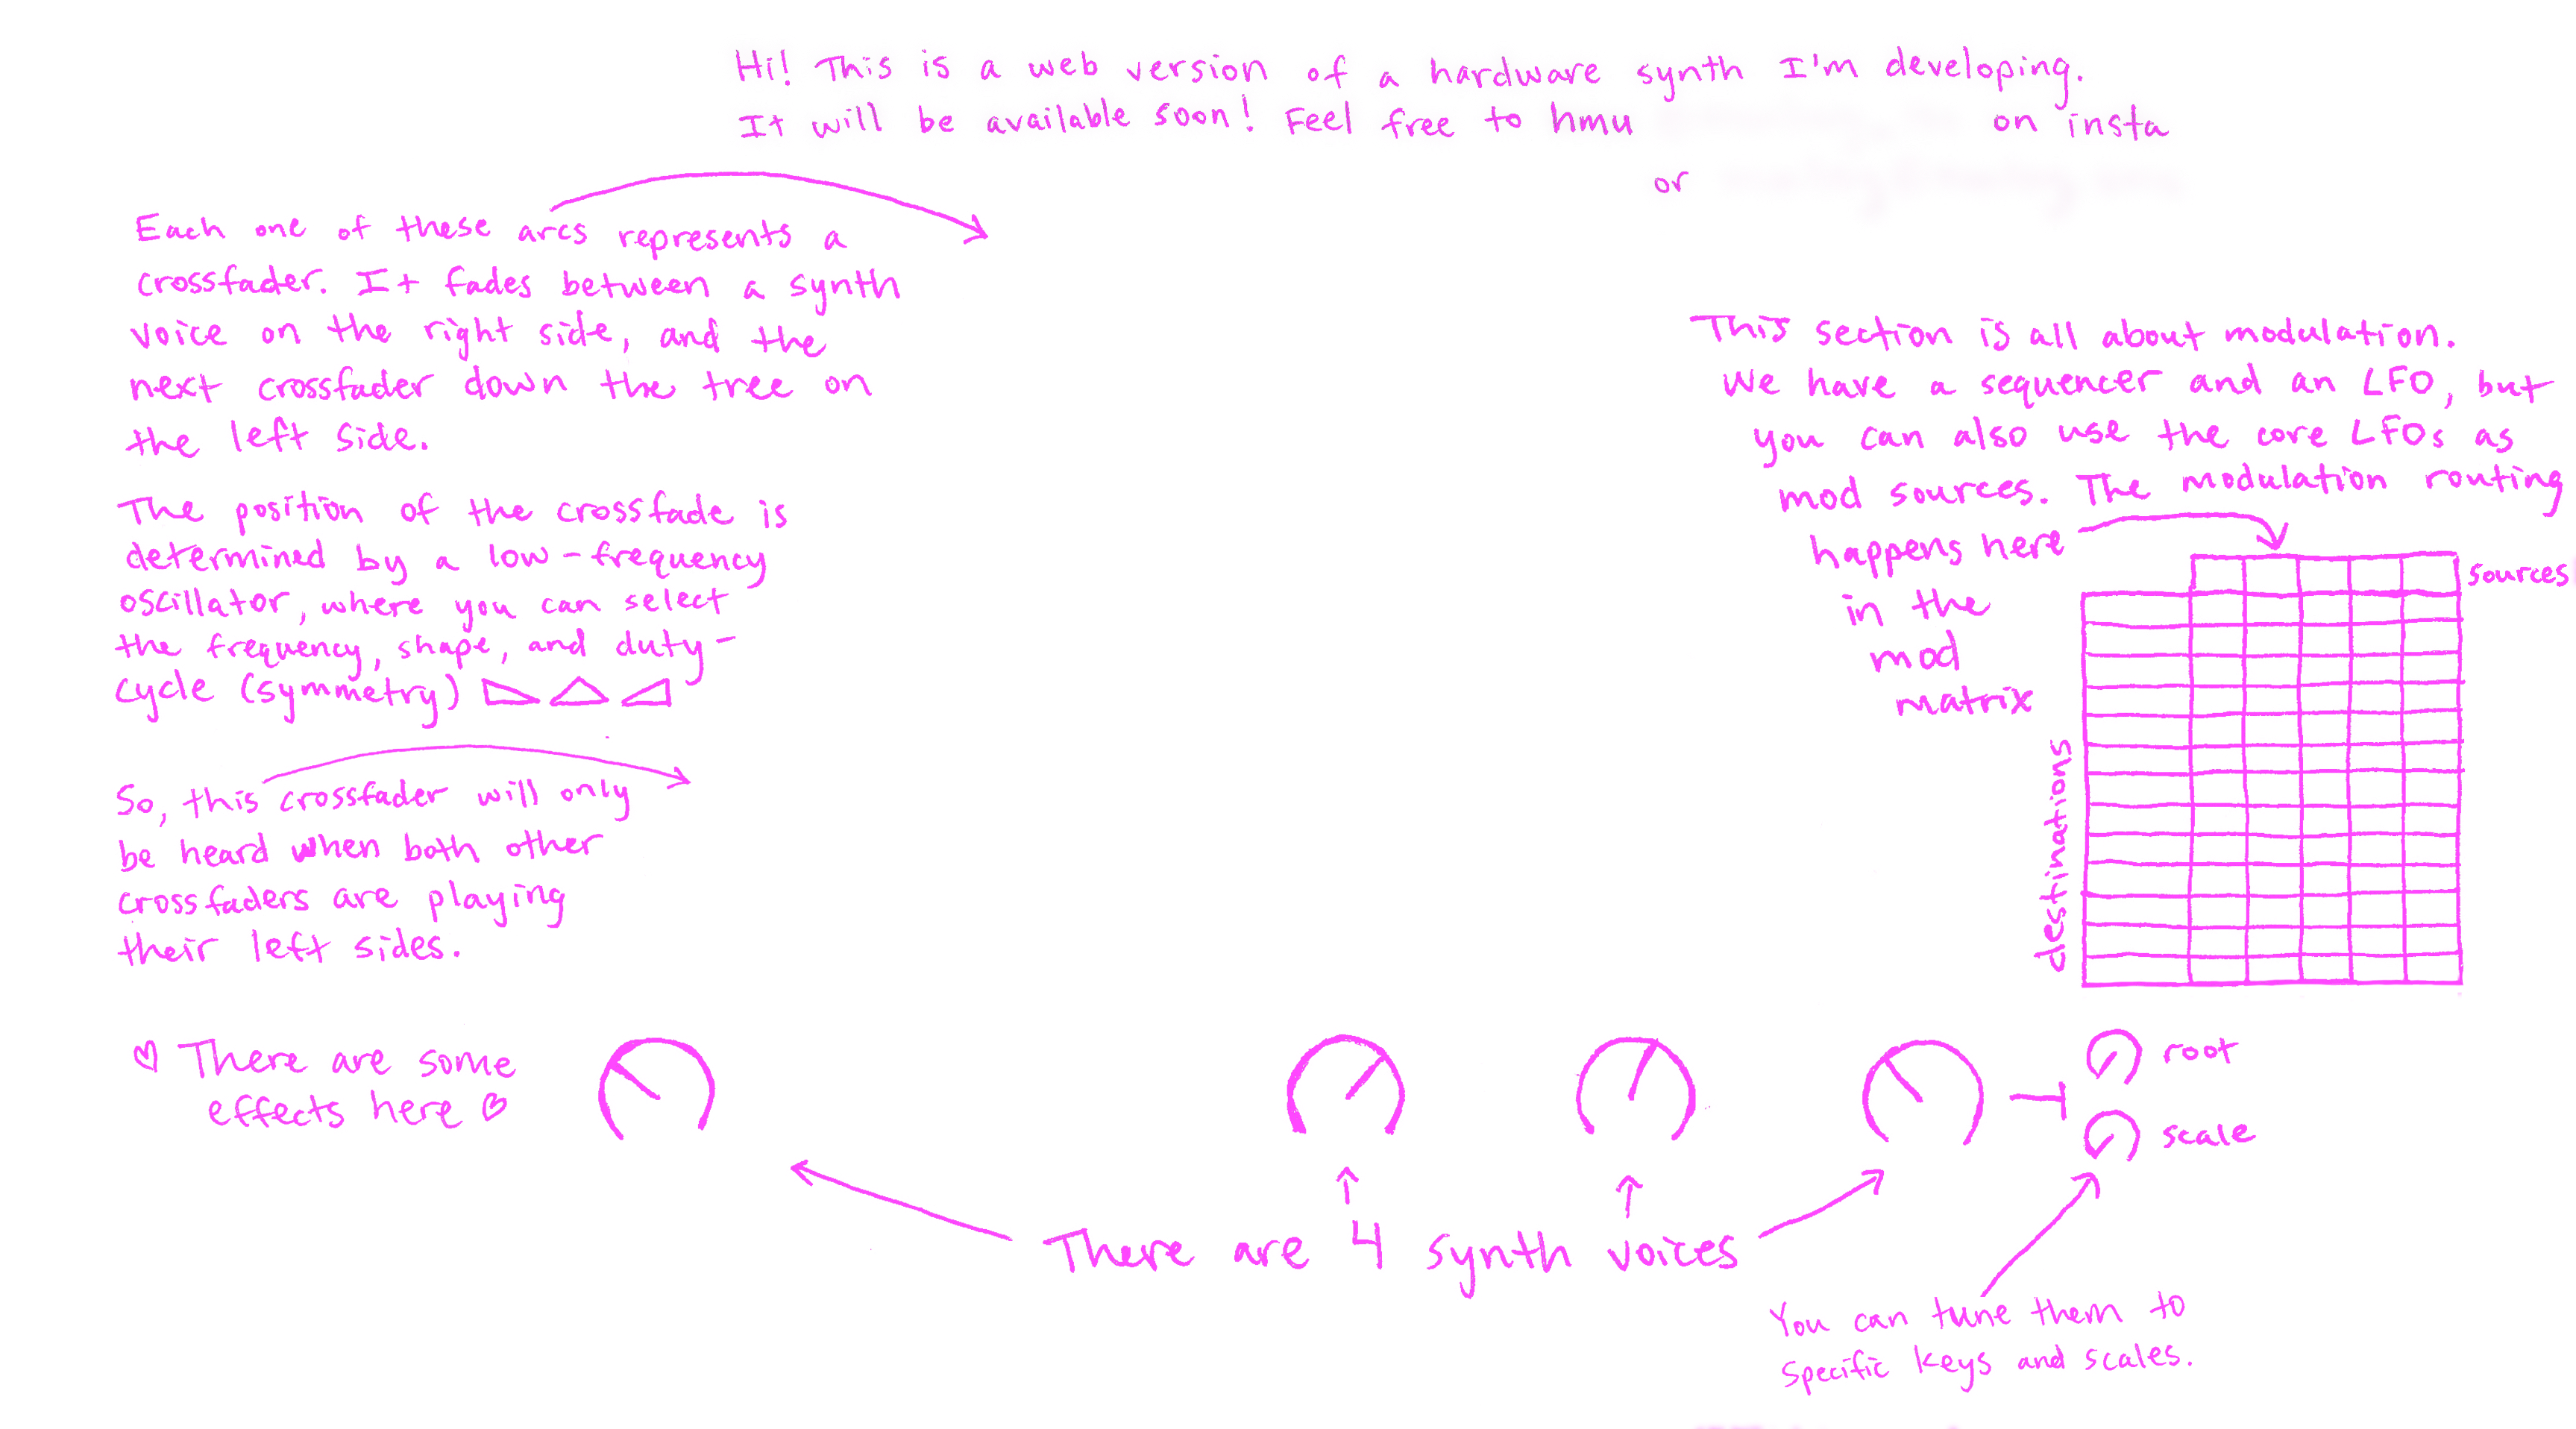 Hi! This is a web version of a hardware synth I'm developing.
It will be available soon! Feel free to hmu on insta
or
Each one of these arcs represents a
crossfader. It fades between a synth
voice on the right side, and the
next crossfader down the tree on
the left side.
The position of the crossfade is
determined by a low-frequency
oscillator, where you can select
the frequency, shape, and duty-
cycle (symmetry)
So, this crossfader will only
be heard when both other
crossfaders are playing
their left sides.
♡ There are some
effects here ♡
This section is all about modulation.
We have a sequencer and an LFO, but
you can also use the core LFOs as
mod sources. The modulation routing
happens here
in the
mod
matrix
sources
destinations
root
scale
There are 4 synth voices
You can tune them to
specific keys and scales.